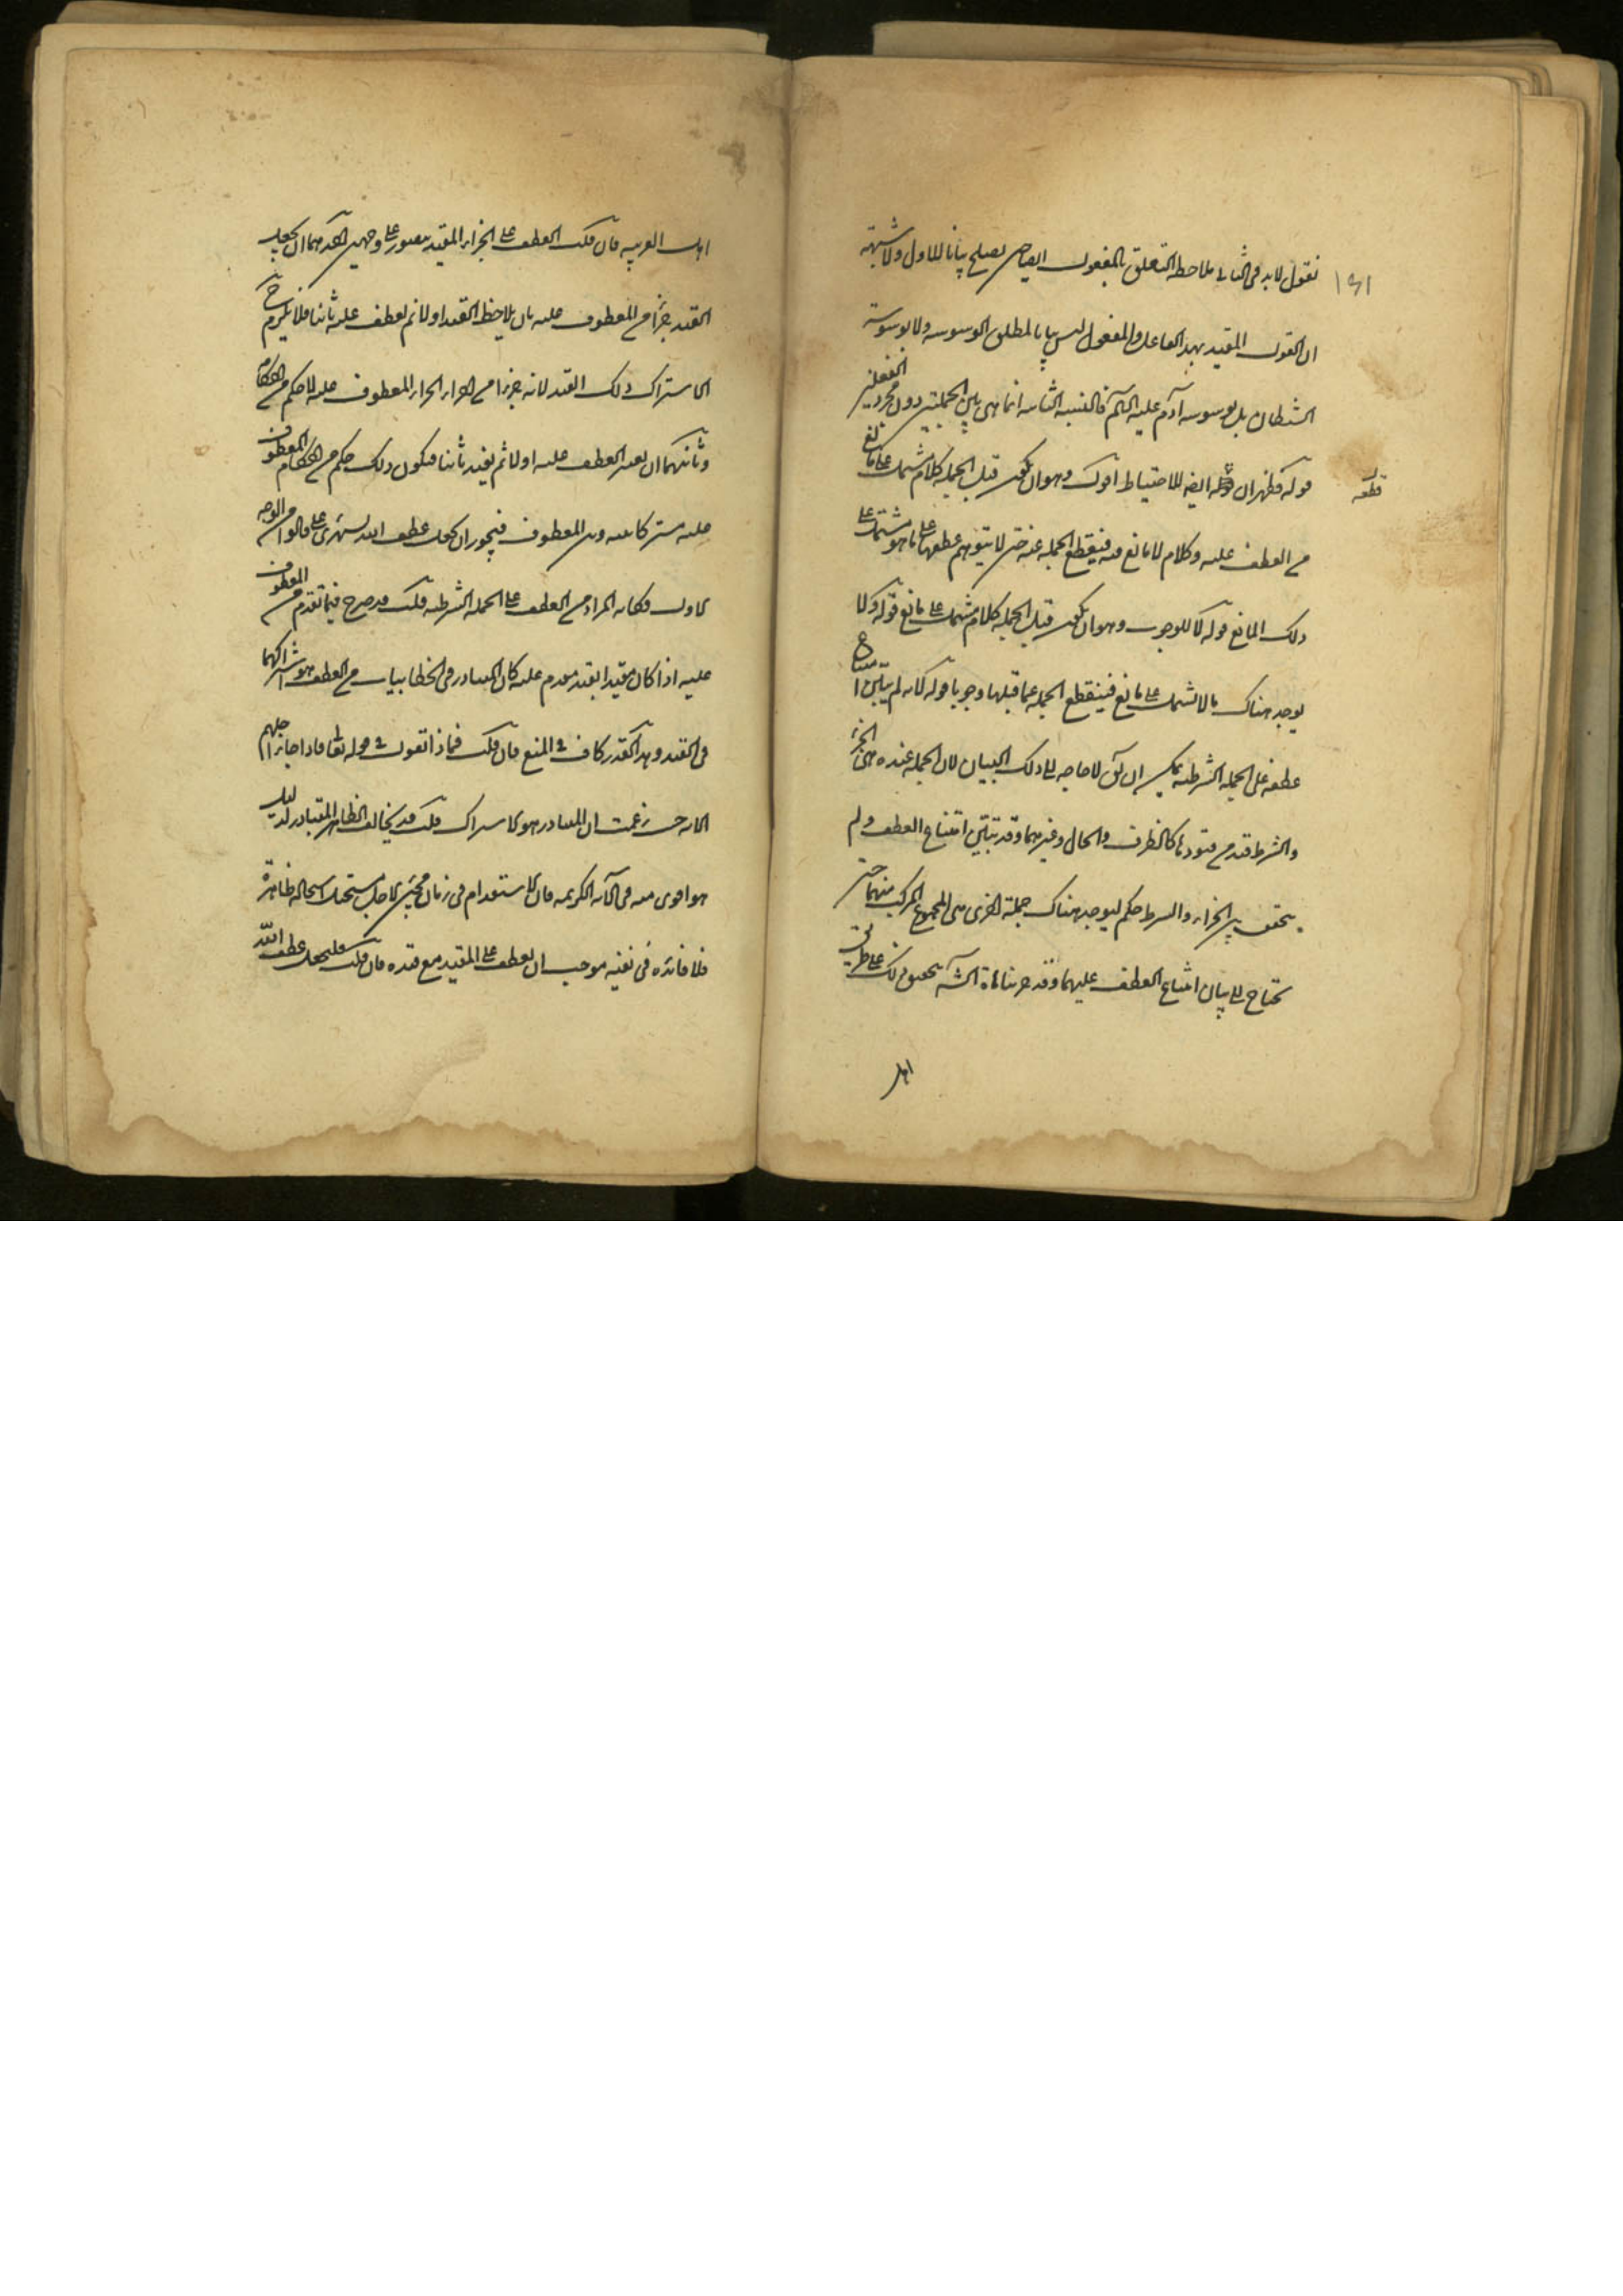 نقول لابد فى الثانى ملاحظة التعلق بالمفعول ايضا حتى يصلح بيانا للاول ولا شبهة
ان القول المقيد بهذا الفاعل والمفعول ليس بيانا لمطلق الوسوسه ولا بوسوسة
الشيطان بل بوسوسه آدم عليه السلم فالنسبه الثانيه انما هى بين الجملتين دون مجرد الفعلين
قوله فظهر ان قطعه ايضا للاحتياط اقول وهو ان يكون قبل الجمله كلام مشتمل على مانع
قطعه
من العطف عليه وكلام لا مانع فيه فيقطع الجمله عنه حتى لا يتوهم عطفها على ما هو مشتمل على
ذلك المانع قوله لا للوجوب وهو ان يكون قبل الجمله كلام مشتمل على مانع قوله ولا
يوجد هناك ما لا يشتمل على مانع فينقطع الجمله عما قبلها وجوبا قوله لانه لم يبين امتناع
عطفه على الجمله الشرطيه يمكن ان يق لا حاجه الى ذلك البيان لان الجمله عنده هى الجزاء
والشرط قيد من قيودها كالظرف والحال وغيرهما وقد تبين امتناع العطف ولم
يتحقق بين الجزاء والشرط حكم ليوجد هناك جملة اخرى هى المجموع المركب منهما حتى
يحتاج الى بيان امتناع العطف عليهما وقد مر بنا تحقيق ذلك على طريق
اهل
اهل العربيه فان قلت العطف على الجزاء المقيد يتصور على وجهين احدهما ان يجعل
القيد جزأ من المعطوف عليه بان يلاحظ القيد اولا ثم يعطف عليه ثانيا فلا يلزم ح
الاشتراك فى ذلك القيد لانه جزء من اجزاء المعطوف عليه لا حكم من احكامه
وثانيهما ان يعتبر العطف عليه اولا ثم يقيد ثانيا فيكون ذلك حكم من احكام المعطوف
عليه مشتركا بينه وبين المعطوف فيجوز ان يجعل عطف الله يستهزئ على قالوا من الوجه
الاول وكانه المراد من العطف على الجمله الشرطيه قلت قد صرح فيما تقدم من المعطوف
عليه اذا كان مقيدا بقيد مقدم عليه كان المتبادر فى الخطابيات من العطف هو اشتراكهما
فى القيد وهذا القدر كاف فى المنع فان قلت فماذا تقول فى قوله تعالى فاذا جاء اجلهم
الايه حيث زعمت ان المتبادر هو الاشتراك قلت قد يخالف الظاهر المتبادر لدليل
هو اقوى منه فى الآيه الكريمه فان الاستقدام فى زمان مجئ الاجل مستحيل استحاله ظاهرة
فلا فائده فى نفيه موجب ان يعطف على المقيد مع قيده فان قلت فليجعل عطف الله